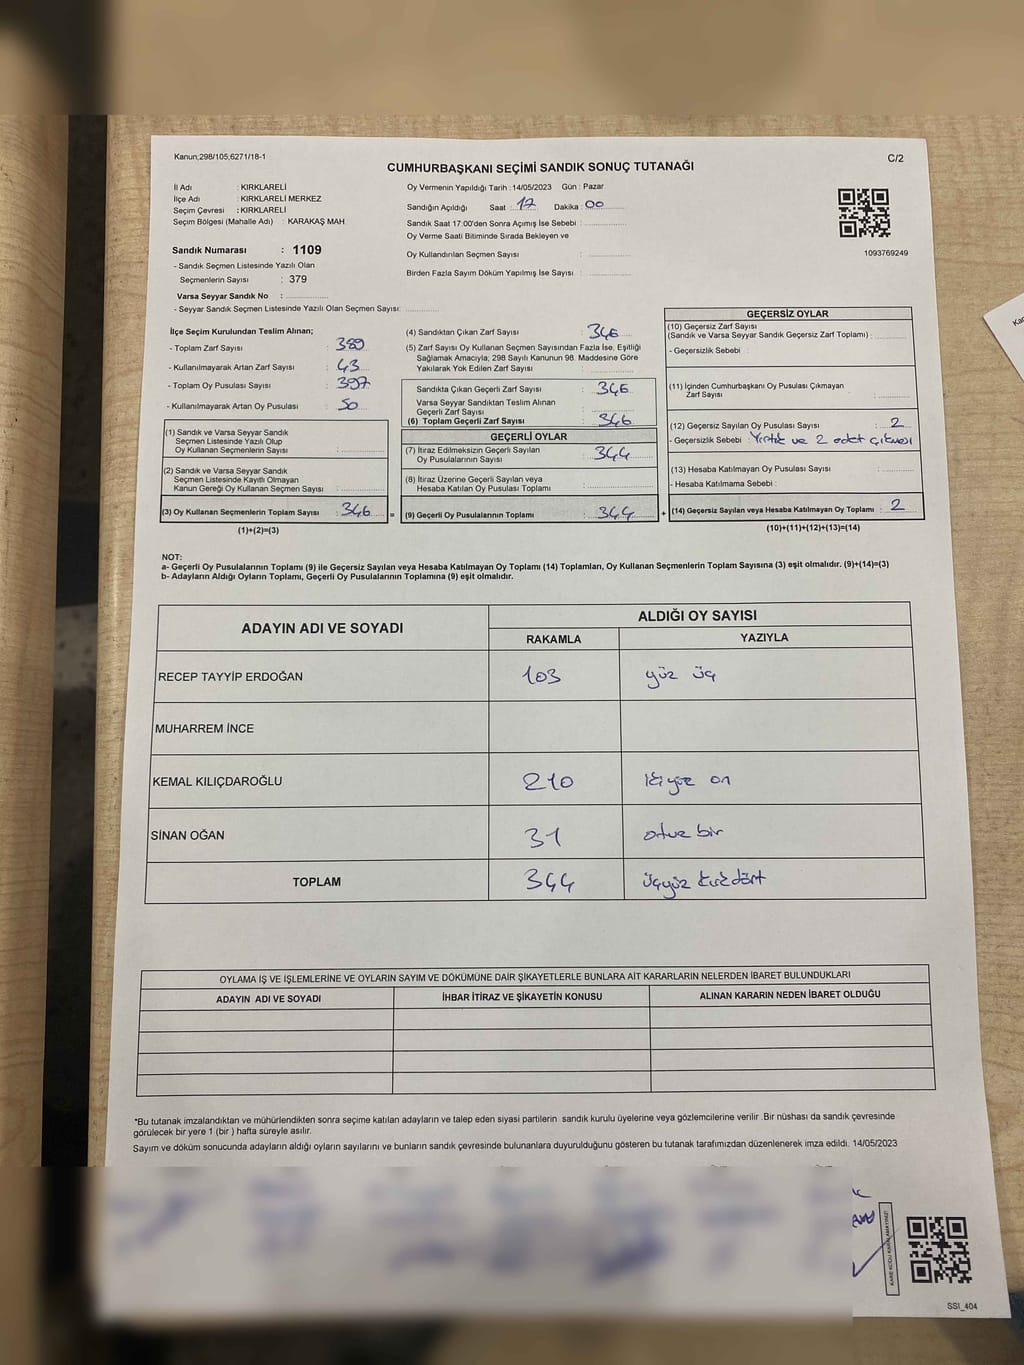 Kanun;298/105;6271/18-1
C/2
CUMHURBAŞKANI SEÇİMİ SANDIK SONUÇ TUTANAĞI
İl Adı : KIRKLARELİ
İlçe Adı : KIRKLARELİ MERKEZ
Seçim Çevresi : KIRKLARELİ
Seçim Bölgesi (Mahalle Adı) : KARAKAŞ MAH.
Sandık Numarası : 1109
- Sandık Seçmen Listesinde Yazılı Olan
Seçmenlerin Sayısı : 379
Varsa Seyyar Sandık No :
- Seyyar Sandık Seçmen Listesinde Yazılı Olan Seçmen Sayısı:
Oy Vermenin Yapıldığı Tarih :14/05/2023 Gün : Pazar
Sandığın Açıldığı Saat : 17 Dakika : 00
Sandık Saat 17:00'den Sonra Açımış İse Sebebi :
Oy Verme Saati Bitiminde Sırada Bekleyen ve
Oy Kullandırılan Seçmen Sayısı :
Birden Fazla Sayım Döküm Yapılmış İse Sayısı :
1093769249
İlçe Seçim Kurulundan Teslim Alınan;
- Toplam Zarf Sayısı : 389
- Kullanılmayarak Artan Zarf Sayısı : 43
- Toplam Oy Pusulası Sayısı : 397
- Kullanılmayarak Artan Oy Pusulası : 50
(1) Sandık ve Varsa Seyyar Sandık
Seçmen Listesinde Yazılı Olup
Oy Kullanan Seçmenlerin Sayısı :
(2) Sandık ve Varsa Seyyar Sandık
Seçmen Listesinde Kayıtlı Olmayan
Kanun Gereği Oy Kullanan Seçmen Sayısı :
(3) Oy Kullanan Seçmenlerin Toplam Sayısı : 346 =
(1)+(2)=(3)
(4) Sandıktan Çıkan Zarf Sayısı : 346
(5) Zarf Sayısı Oy Kullanan Seçmen Sayısından Fazla İse, Eşitliği
Sağlamak Amacıyla; 298 Sayılı Kanunun 98. Maddesine Göre
Yakılarak Yok Edilen Zarf Sayısı :
Sandıkta Çıkan Geçerli Zarf Sayısı : 346
Varsa Seyyar Sandıktan Teslim Alınan
Geçerli Zarf Sayısı :
(6) Toplam Geçerli Zarf Sayısı : 346
GEÇERLİ OYLAR
(7) İtiraz Edilmeksizin Geçerli Sayılan
Oy Pusulalarının Sayısı : 344
(8) İtiraz Üzerine Geçerli Sayılan veya
Hesaba Katılan Oy Pusulası Toplamı :
(9) Geçerli Oy Pusulalarının Toplamı : 344 +
GEÇERSİZ OYLAR
(10) Geçersiz Zarf Sayısı
(Sandık ve Varsa Seyyar Sandık Geçersiz Zarf Toplamı) :
- Geçersizlik Sebebi :
(11) İçinden Cumhurbaşkanı Oy Pusulası Çıkmayan
Zarf Sayısı :
(12) Geçersiz Sayılan Oy Pusulası Sayısı : 2
- Geçersizlik Sebebi : Yırtık ve 2 adet çıkması
(13) Hesaba Katılmayan Oy Pusulası Sayısı :
- Hesaba Katılmama Sebebi :
(14) Geçersiz Sayılan veya Hesaba Katılmayan Oy Toplamı : 2
(10)+(11)+(12)+(13)=(14)
NOT:
a- Geçerli Oy Pusulalarının Toplamı (9) ile Geçersiz Sayılan veya Hesaba Katılmayan Oy Toplamı (14) Toplamları, Oy Kullanan Seçmenlerin Toplam Sayısına (3) eşit olmalıdır. (9)+(14)=(3)
b- Adayların Aldığı Oyların Toplamı, Geçerli Oy Pusulalarının Toplamına (9) eşit olmalıdır.
ADAYIN ADI VE SOYADI ALDIĞI OY SAYISI
RAKAMLA YAZIYLA
RECEP TAYYİP ERDOĞAN 103 yüz üç
MUHARREM İNCE
KEMAL KILIÇDAROĞLU 210 İki yüz on
SİNAN OĞAN 31 otuz bir
TOPLAM 344 üçyüz kırkdört
OYLAMA İŞ VE İŞLEMLERİNE VE OYLARIN SAYIM VE DÖKÜMÜNE DAİR ŞİKAYETLERLE BUNLARA AİT KARARLARIN NELERDEN İBARET BULUNDUKLARI
ADAYIN ADI VE SOYADI İHBAR İTİRAZ VE ŞİKAYETİN KONUSU ALINAN KARARIN NEDEN İBARET OLDUĞU
*Bu tutanak imzalandıktan ve mühürlendikten sonra seçime katılan adayların ve talep eden siyasi partilerin sandık kurulu üyelerine veya gözlemcilerine verilir .Bir nüshası da sandık çevresinde
görülecek bir yere 1 (bir ) hafta süreyle asılır.
Sayım ve döküm sonucunda adayların aldığı oyların sayılarını ve bunların sandık çevresinde bulunanlara duyurulduğunu gösteren bu tutanak tarafımızdan düzenlenerek imza edildi. 14/05/2023
KARE KODU KARALAMAYINIZ!
SSI_404